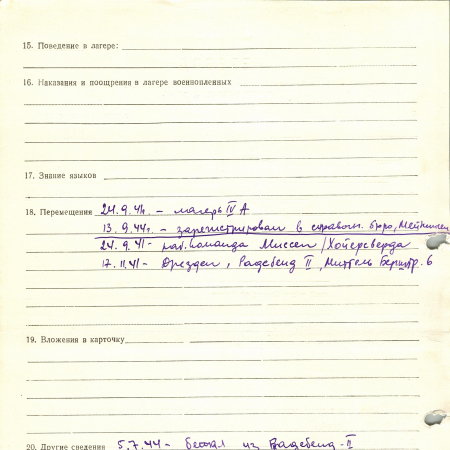 15. Поведение в лагере:
16. Наказания и поощрения в лагере военнопленных
17. Знание языков
18. Перемещения 24.9.41. – лагерь IV A
13.9.44г. – зарегистрирован в справочн. бюро, Мейниген
24.9.41 – раб. команда Миссен/Хойерсверда
17.11.41 – Дрезден, Радебейд II, Миттель Бергштр. 6
19. Вложения в карточку
20. Другие сведения 5.7.44 – бежал из Радебейд-II